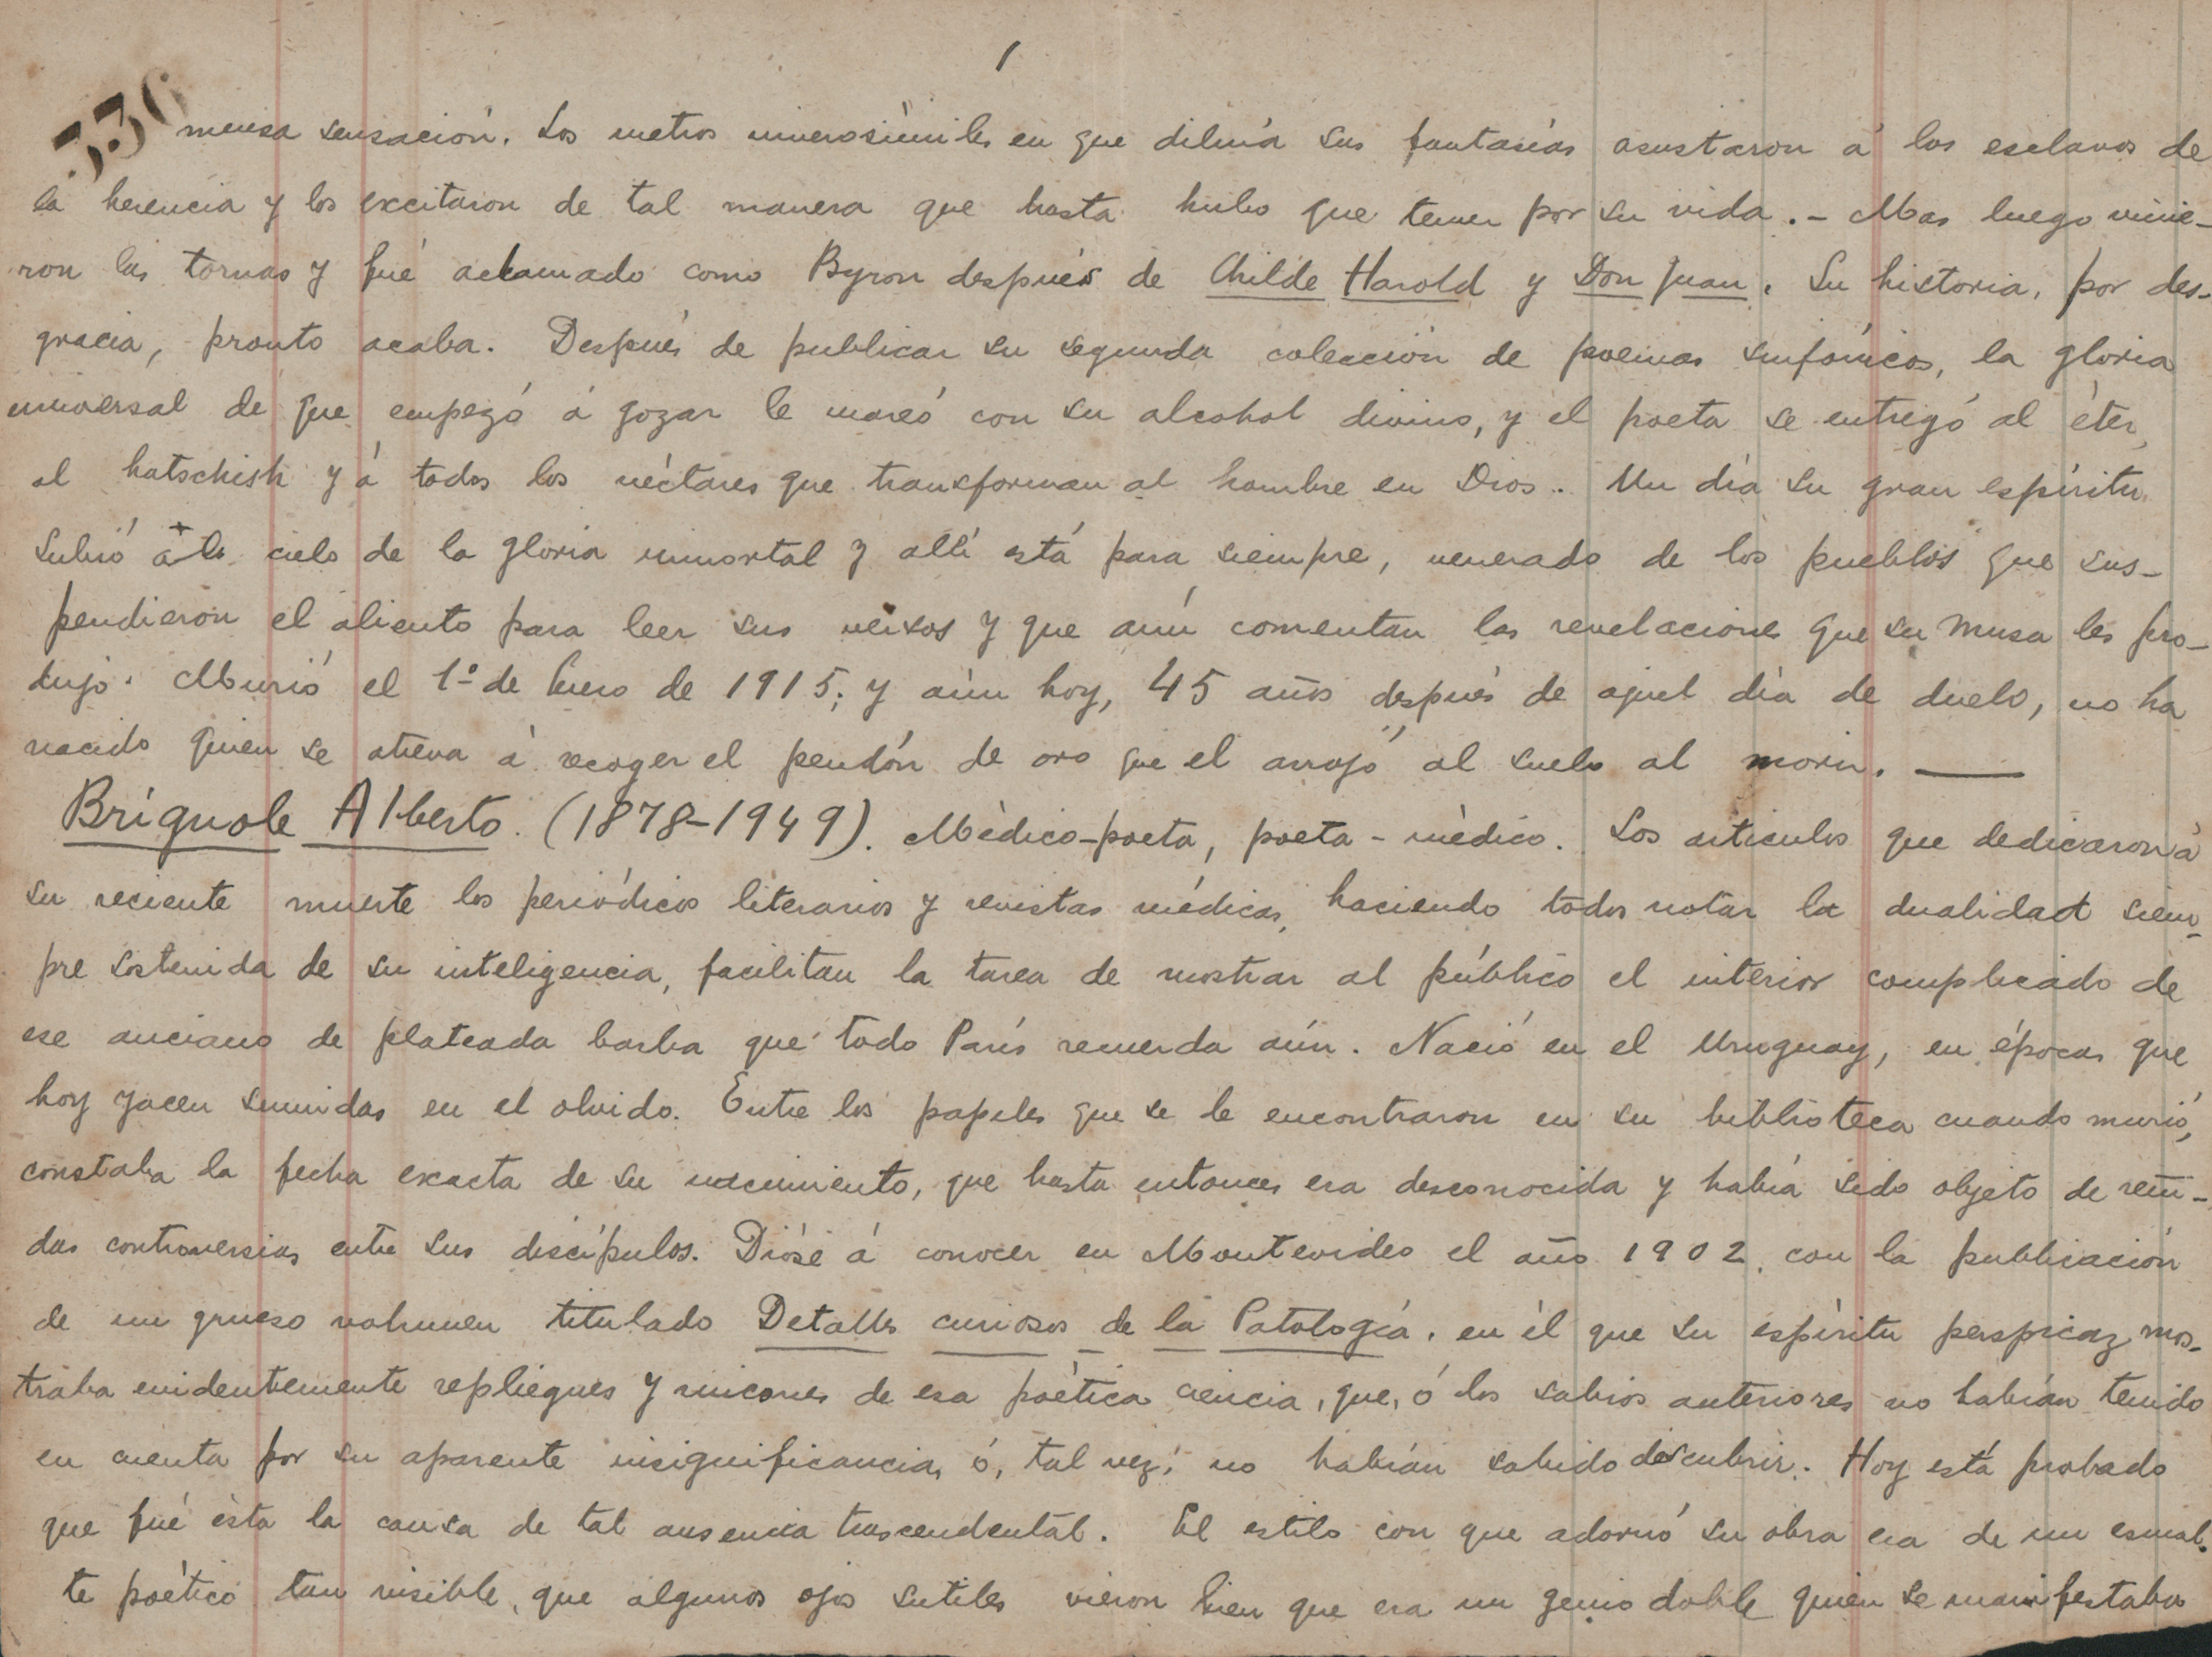 1
336
mensa sensación. Los metros inverosímiles en que diluía sus fantasías asustaron á los esclavos de
la herencia y los excitaron de tal manera que hasta hubo que temer por su vida. - Mas luego vinie-
ron las tornas y fué aclamado como Byron después de Childe Harold y Don Juan. Su historia, por des-
gracia, pronto acaba. Después de publicar su segunda colección de poemas sinfónicos, la gloria
universal de que empezó á gozar le mareó con su alcohol divino, y el poeta se entregó al éter,
al hatschish y á todos los néctares que transforman al hombre en Dios. Un día su gran espíritu
subió al cielo de la gloria inmortal y allí está para siempre, venerado de los pueblos que sus-
pendieron el aliento para leer sus versos y que aún comentan las revelaciones que su Musa les pro-
dujo. Murió el 1º de Enero de 1915; y aún hoy, 45 años después de aquel día de duelo, no ha
nacido quien se atreva á recoger el pendón de oro que el arrojó al suelo al morir. —
Brignole Alberto. (1878-1949). Médico-poeta, poeta-médico. Los artículos que dedicaron á
su reciente muerte los periódicos literarios y revistas médicas, haciendo todos notar la dualidad siem-
pre sostenida de su inteligencia, facilitan la tarea de mostrar al público el interior complicado de
ese anciano de plateada barba que todo París recuerda aún. Nació en el Uruguay, en épocas que
hoy yacen sumidas en el olvido. Entre los papeles que se le encontraron en su biblioteca cuando murió,
constaba la fecha exacta de su nacimiento, que hasta entonces era desconocida y había sido objeto de reñi-
das controversias entre sus discípulos. Dióse á conocer en Montevideo el año 1902, con la publicación
de un grueso volumen titulado Detalles curiosos de la Patología, en él que su espíritu perspicaz mos-
traba evidentemente repliegues y rincones de esa poética ciencia, que, ó los sabios anteriores no habían tenido
en cuenta por su aparente insignificancia, ó, tal vez, no habían sabido descubrir. Hoy está probado
que fué ésta la causa de tal ausencia trascendental. El estilo con que adornó su obra era de un esmal-
te poético tan visible, que algunos ojos sutiles vieron bien que era un genio doble quien se manifestaba